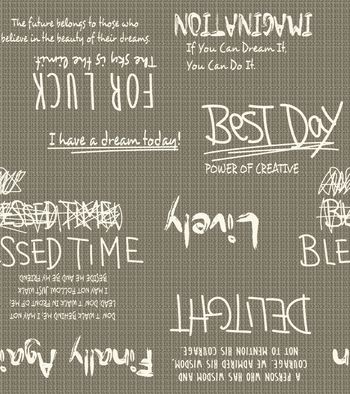 The future belongs to those who
believe in the beauty of their dreams.
FOR LUCK
The sky is the limit
I have a dream today!
IMAGINATION
If You Can Dream It,
You Can Do It.
BEST DAY
POWER OF CREATIVE
SSED TIME
SSED TIME
DON'T WALK BEHIND ME, I MAY NOT
LEAD. DON'T WALK IN FRONT OF ME,
I MAY NOT FOLLOW. JUST WALK
BESIDE ME AND BE MY FRIEND
Lively
BLE
A PERSON WHO HAD WISDOM AND
COURAGE. WE ADMIRED HIS WISDOM,
NOT TO MENTION HIS COURAGE.
DELIGHT
Finally Again